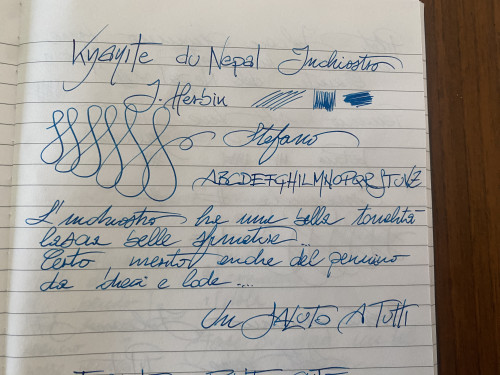 Kyanite du Nepal Inchiostro
J. Herbin
Stefano
ABCDEFGHILMNOPQRSTUVZ
L'inchiostro ha una bella tonalità
lascia belle sfumature ...
Certo merito anche del pennino
da 
e lode ....
Un SALUTO A TUTTI